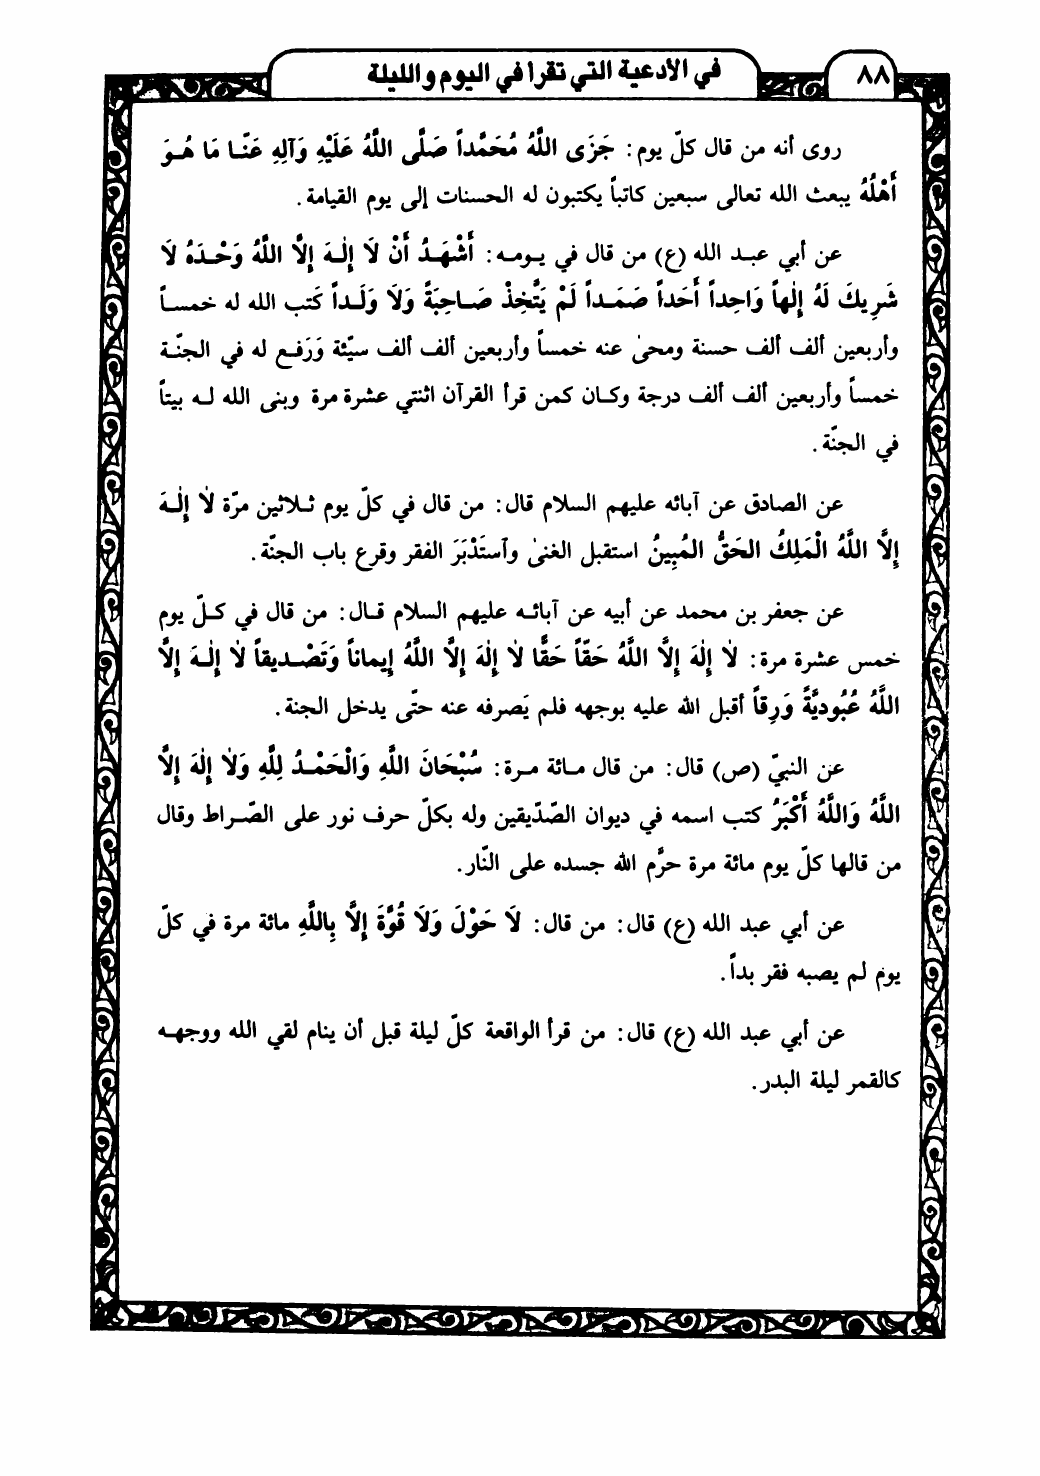 ٨٨
في الأدعية التي تقرا في اليوم والليلة
روى أنه من قال كلّ يوم: جَزَى اللَّهُ مُحَمَّداً صَلَّى اللَّهُ عَلَيْهِ وَآلِهِ عَنّا مَا هُوَ
أَهْلُهُ يبعث الله تعالى سبعين كاتباً يكتبون له الحسنات إلى يوم القيامة.
عن أبي عبد الله (ع) من قال في يومه: أَشْهَدُ أَنْ لَا إِلٰهَ إِلاَّ اللَّهُ وَحْدَهُ لَا
شَرِيكَ لَهُ إِلٰهاً وَاحِداً أَحَداً صَمَداً لَمْ يَتَّخِذْ صَاحِبَةً وَلَا وَلَداً كَتب الله له خمساً
وأربعين ألف ألف حسنة ومحىٰ عنه خمساً وأربعين ألف ألف سيّئة وَرَفع له في الجنّة
خمساً وأربعين ألف ألف درجة وكان كمن قرأ القرآن اثنتي عشرة مرة وبنى الله له بيتاً
في الجنّة.
عن الصادق عن آبائه عليهم السلام قال: من قال في كلّ يوم ثلاثين مرّة لاٰ إِلٰهَ
إِلاَّ اللَّهُ الْمَلِكُ الحَقُّ المُبِينُ استقبل الغنىٰ وآستَدْبَرَ الفقر وقرع باب الجنّة.
عن جعفر بن محمد عن أبيه عن آبائه عليهم السلام قال: من قال في كلّ يوم
خمس عشرة مرة: لاٰ إِلٰهَ إِلاَّ اللَّهُ حَقّاً حَقّاً لاٰ إِلٰهَ إِلاَّ اللَّهُ إِيماناً وَتَصْديقاً لاٰ إِلٰهَ إِلاَّ
اللَّهُ عُبُوديَّةً وَرِقاً أقبل الله عليه بوجهه فلم يَصرفه عنه حتّى يدخل الجنة.
عن النبيّ (ص) قال: من قال مائة مرة: سُبْحَانَ اللَّهِ وَالْحَمْدُ لِلَّهِ وَلاٰ إِلٰهَ إِلاَّ
اللَّهُ وَاللَّهُ أَكْبَرُ كتب اسمه في ديوان الصّدّيقين وله بكلّ حرف نور على الصّراط وقال
من قالها كلّ يوم مائة مرة حرَّم الله جسده على النّار.
عن أبي عبد الله (ع) قال: من قال: لَا حَوْلَ وَلَا قُوَّةَ إِلاَّ بِاللَّهِ مائة مرة في كلّ
يوم لم يصبه فقر بداً.
عن أبي عبد الله (ع) قال: من قرأ الواقعة كلّ ليلة قبل أن ينام لقي الله ووجهه
كالقمر ليلة البدر.